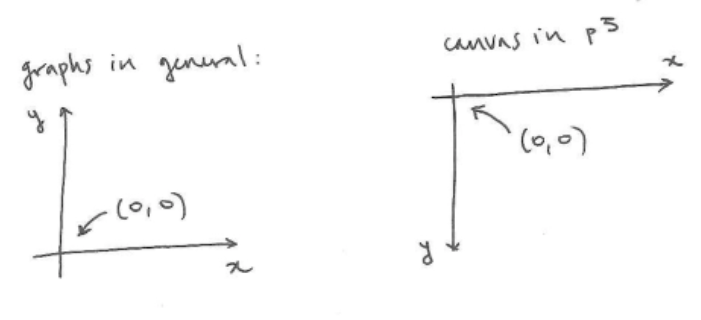 graphs in general:
y
(0,0)
x
canvas in p5
x
(0,0)
y